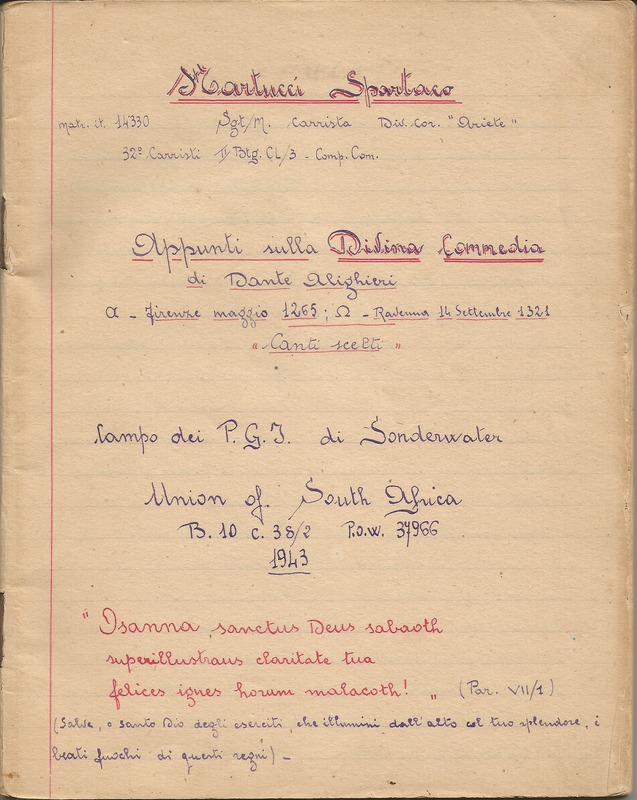 Martucci Spartaco
matr. it. 14330 Sgt/M. Carrista Div. Cor. "Ariete"
32º Carristi II Btg. CL/3 - Comp. Com.
Appunti sulla Divina Commedia
di Dante Alighieri
α - Firenze maggio 1265; Ω - Ravenna 14 Settembre 1321
"Canti scelti"
Campo dei P.G.I. di Sonderwater
Union of South Africa
B. 10 C. 38/2 P.O.W. 37966
1943
"Osanna, sanctus Deus sabaoth
superillustrans claritate tua
felices ignes horum malacoth! " (Par. VII/1)
(Salve, o santo Dio degli eserciti, che illumini dall'alto col tuo splendore, i
beati fuochi di questi regni) -